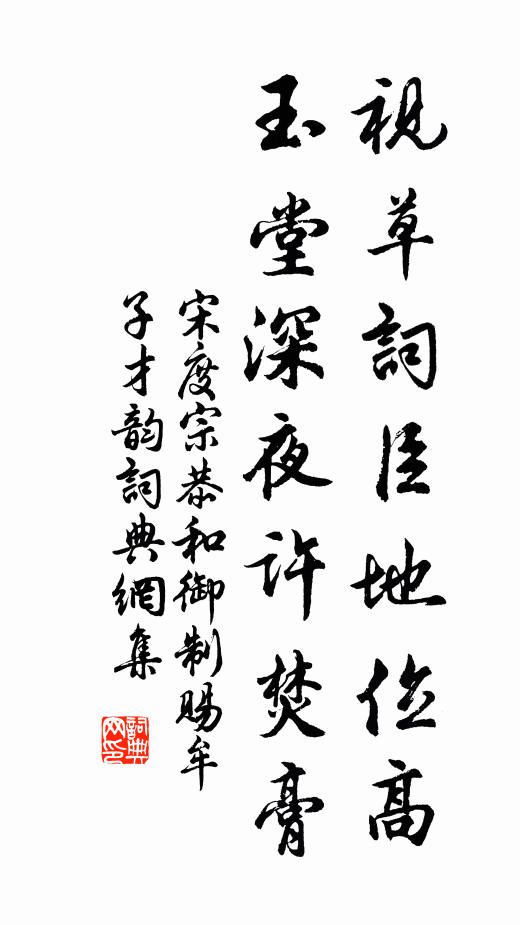 視草詞臣地位高
玉堂深夜許焚膏
宋度宗恭和御制賜牟
子才韵詞典網集
詞典網印